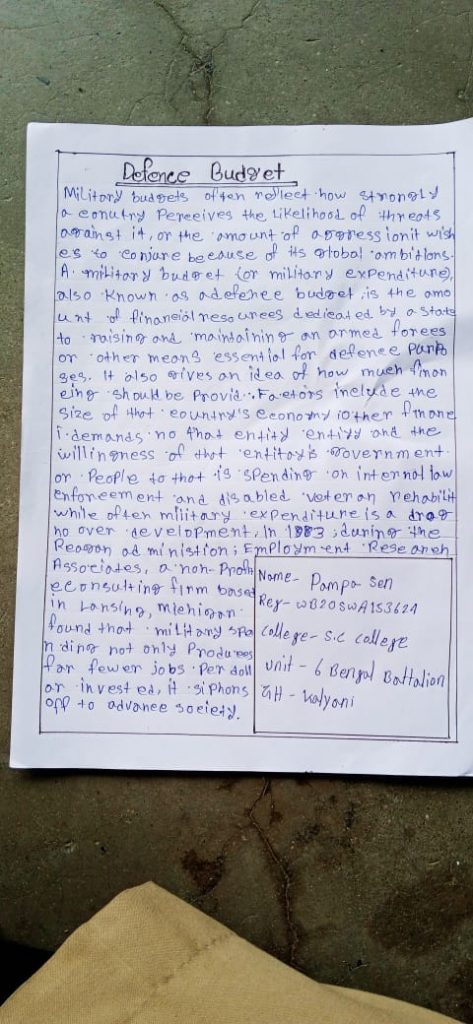 Defence Budget
Military budgets often reflect how strongly
a conutry Perceives the Likelihood of threats
against it, or the amount of aggressionit wish
es to conjure because of its global ambitions.
A military budget (or military expenditure),
also Known as adefence budget, is the amo
unt of financial resources dedicated by a State
to raising and maintaining an armed forces
or other means essential for defence Purpo
ses. It also gives an idea of how much finan
cing should be Provid.. Factors include the
Size of that country's economy, other financ
i.demands no that entity entity and the
willingness of that entitay's Government.
or People to that is spending on internal law
enforcement and disabled veteran rehabilit
while often military expenditure is a drag
no over development, In 1983; during the
Reagan ad ministion; Employment Research
Associates, a non-Profi
econsulting firm based
in Lansing, Michigan
found that military spe
nding not only Produces
far fewer jobs Per doll
ar invest ed, it siphons
off to advance society.
Name- Pampa Sen
Reg- WB20SWA153624
College- S.C College
Unit - 6 Bengal Battalion
GH - Kalyani